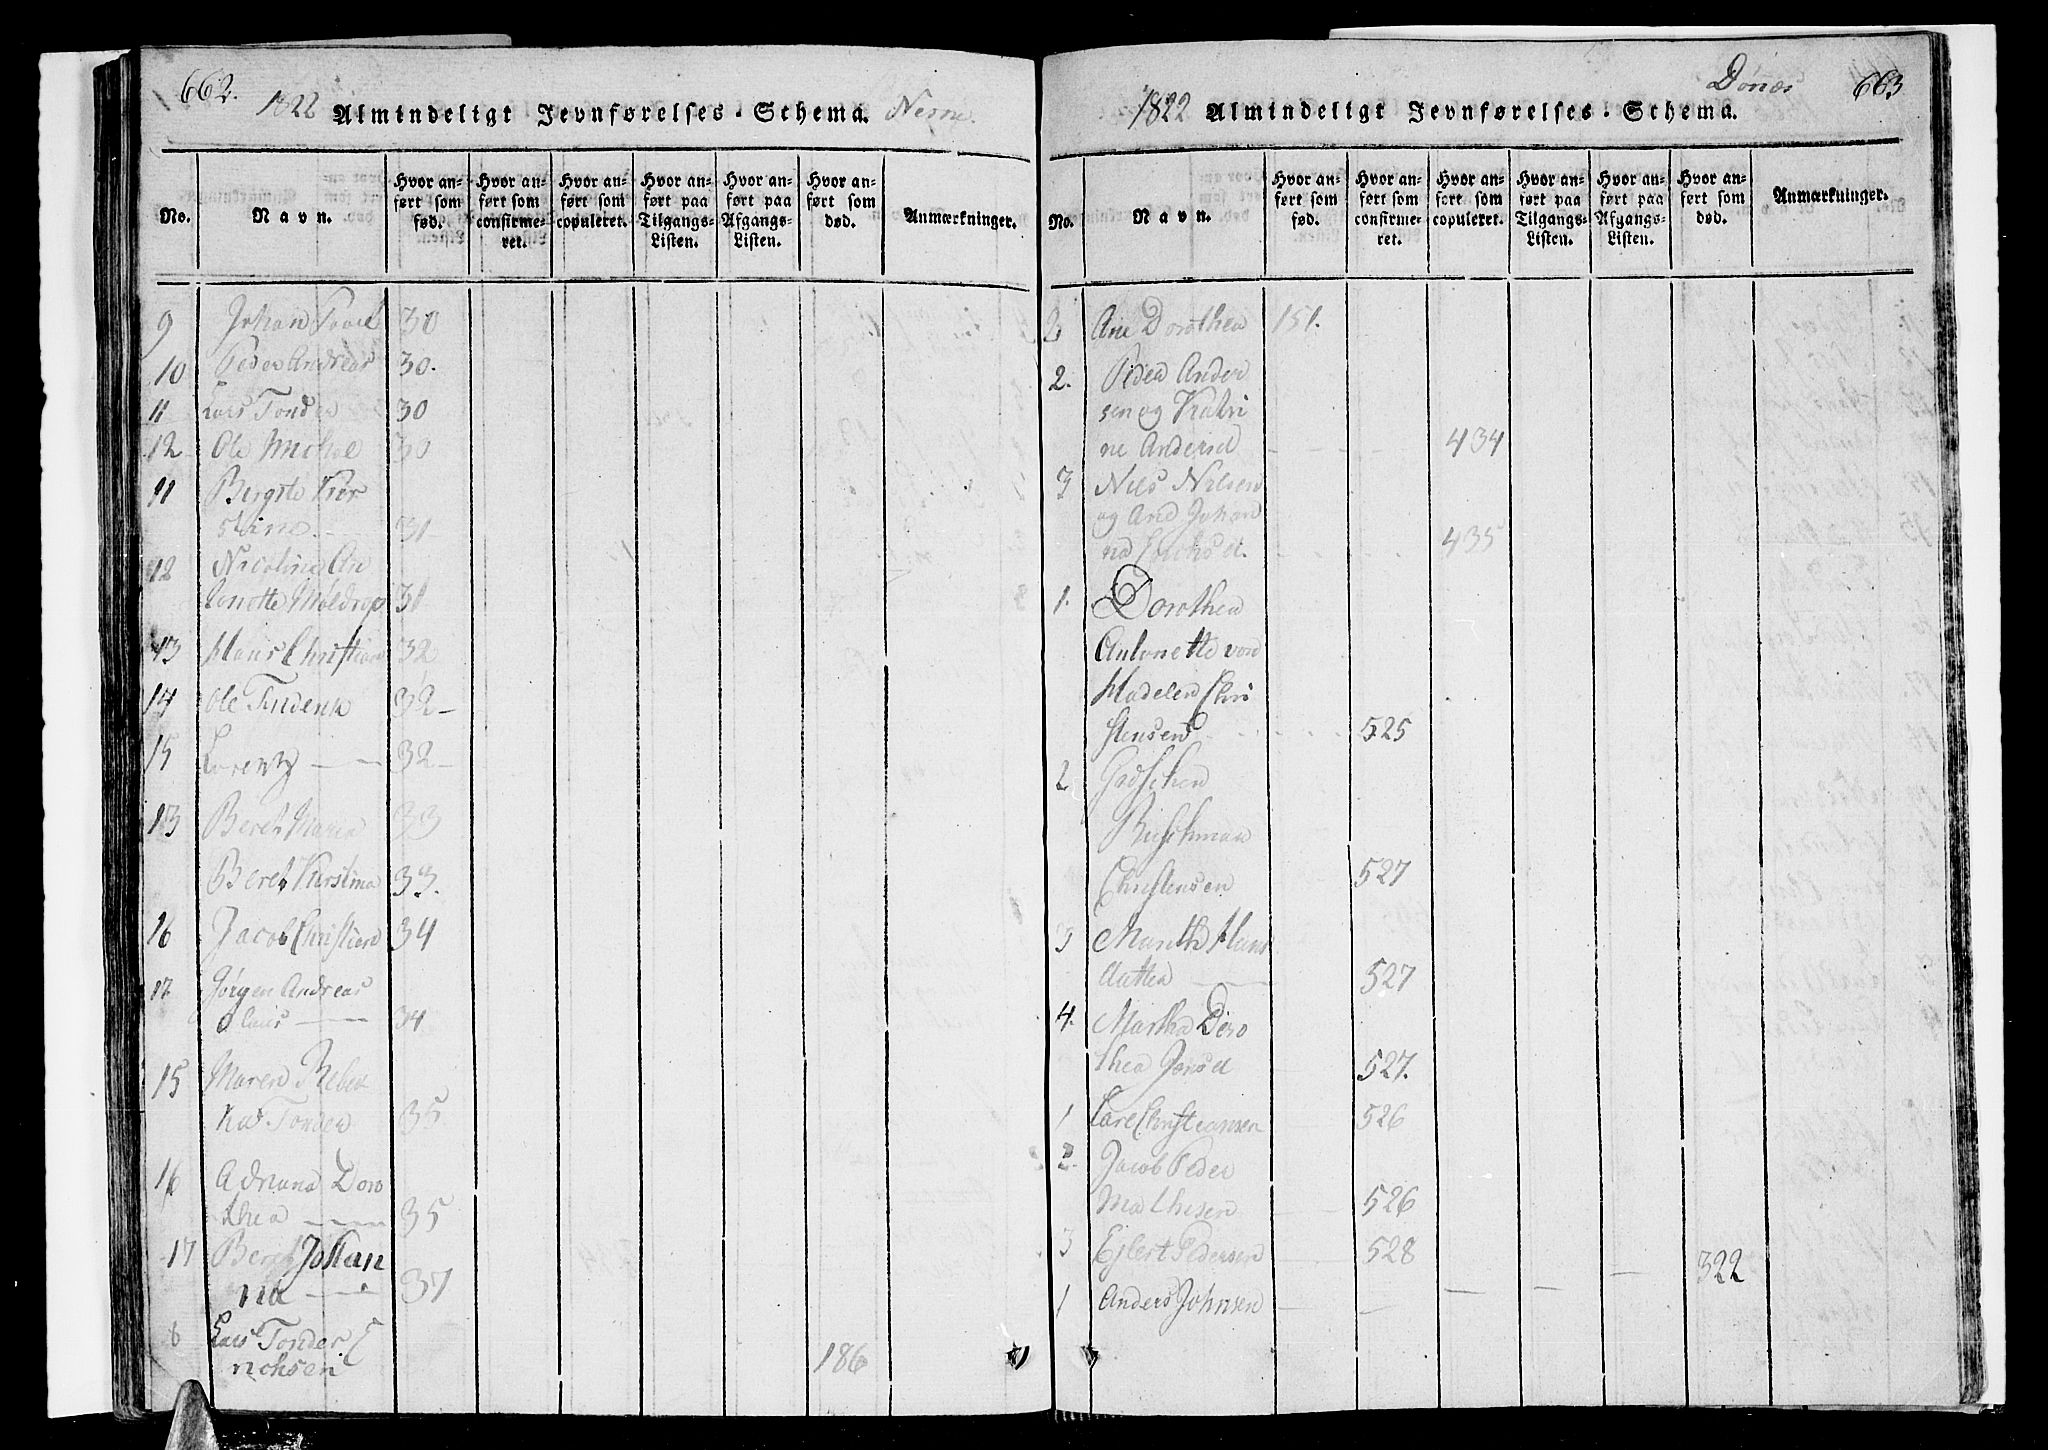 662.
1822 Almindeligt Jevnførelses-Schema. Nesne.
No.
Navn.
Hvor anført som fød.
Hvor anført som confirmeret.
Hvor anført som copuleret.
Hvor anført paa Tilgangs-Listen.
Hvor anført paa Afgangs-Listen.
Hvor anført som død.
Anmærkninger.
9 Johan 30
10 Peder Andreas 30.
11 Lars Tonder 30
12 Ole Michel 30
11 Bergite Kier
stine. 31
12 Nicolina An
tonette Moldrop 31
13 Hans Christian 32
14 Ole 32
15 Lorentz 32
13 Beret Maria 33
Beret Kirstina 33.
16 Jacob Christian 34
17 Jørgen Andreas
Olaus 34
15 Maren Rebek
ka Tonder 35
16 Adriana Doro
thea 35
17 Beret Johan
na 37
8 Lars Tonder E
richsen 186
1822 Almindeligt Jevnførelses-Schema. Dønæs 663
No.
Navn.
Hvor anført som fød.
Hvor anført som confirmeret.
Hvor anført som copuleret.
Hvor anført paa Tilgangs-Listen.
Hvor anført paa Afgangs-Listen.
Hvor anført som død.
Anmærkninger.
2 Ane Dorothea 151.
2. Peder Ander
sen og Katri
ne Andersd 434
3 Nils Nilsen
og Ane Johan
na 435
1. Dorothea
Antonette von
Hadelen Chri
stensen 525
2 Gretschen
Buschman
Christensen 527
3 Marith Hans
datter 527
4. Martha Doro
thea Jensd 527.
1 Lars Christiansen 526
2. Jacob Peder
Mathisen 526
3 Ejlert Pedersen 528
1 Anders Johnsen 322